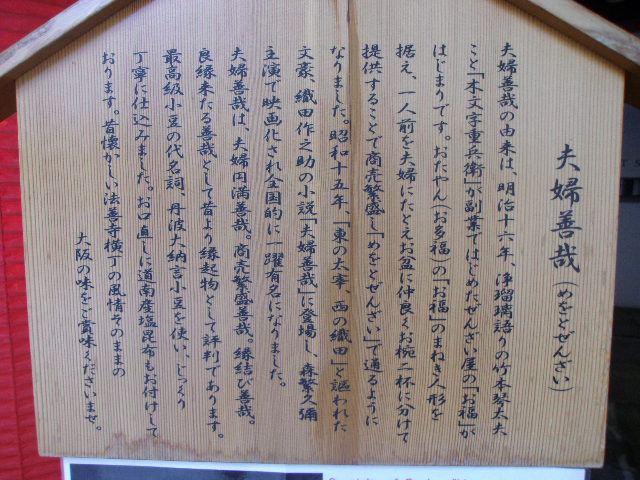 夫婦善哉(めをとぜんざい)
夫婦善哉の由来は、明治十六年、浄瑠璃語りの竹本琴太夫
こと「木文字重兵衛」が副業ではじめたぜんざい屋の「お福」が
はじまりです。おたやん(お多福)の「お福」のまねき人形を
据え、一人前を夫婦にたとえお盆に仲良くお椀二杯に分けて
提供することで商売繁盛し「めをとぜんざい」で通るように
なりました。昭和十五年、「東の太宰 西の織田」と謳われた
文豪、織田作之助の小説「夫婦善哉」に登場し、森繁久彌
主演で映画化され全国的に一躍有名になりました。
夫婦善哉は、夫婦円満善哉。商売繁盛善哉。縁結び善哉。
良縁来たる善哉として昔より縁起物として評判であります。
最高級小豆の代名詞、丹波大納言小豆を使い、じっくり
丁寧に仕込みました。お口直しに道南産塩昆布もお付けして
おります。昔懐かしい法善寺横丁の風情そのままの
大阪の味をご賞味くださいませ。